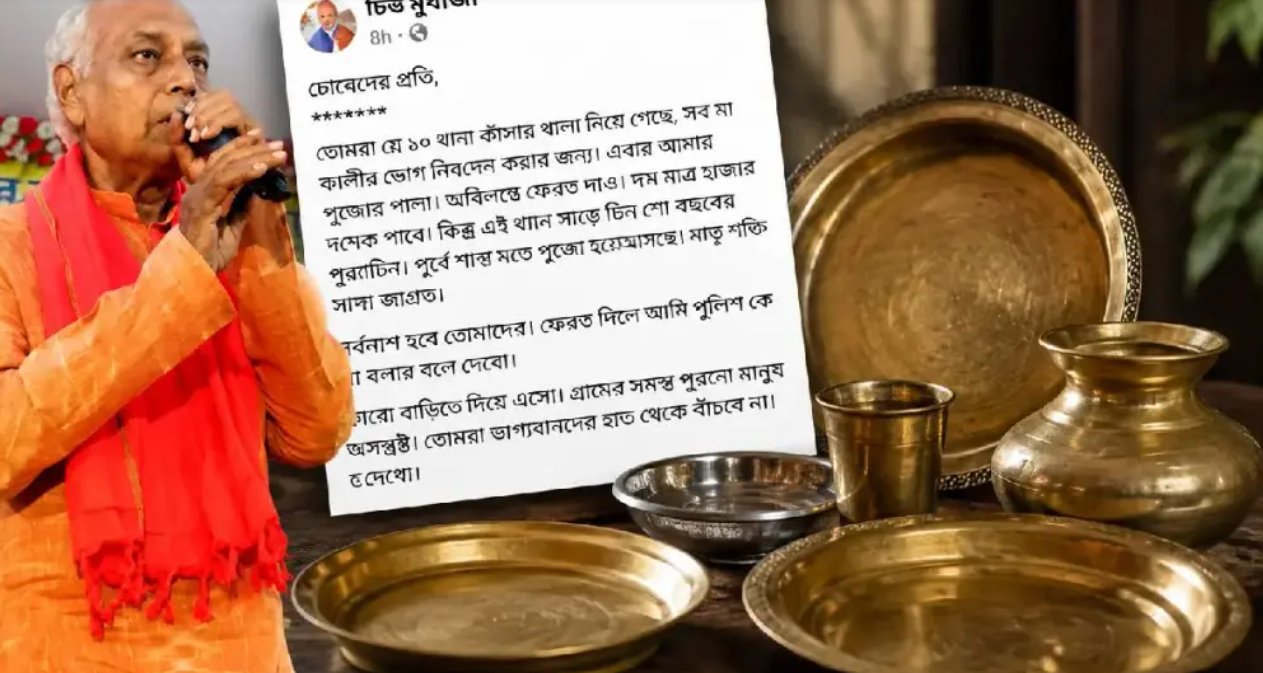 8h
চোরেদের প্রতি,
*******
তোমরা যে ১০ থানা কাঁসার থালা নিয়ে গেছে, সব মা
কালীর ভোগ নিবদেন করার জন্য। এবার আমার
পুজোর পালা। অবিলম্তে ফেরত দাও। দম মাত্র হাজার
দশেক পাবে। কিন্তু এই থাান সাড়ে চিন শো বছবের
পুরাাচিন। পুর্বে শাস্ত্র মতে পুজো হয়েআসছে। মাতৃ শক্তি
সাদা জাগ্রত।
র্বনাশ হবে তোমাদের। ফেরত দিলে আমি পুলিশ কে
বলার বলে দেবো।
বাড়িতে দিয়ে এসো। গ্রামের সমস্ত পুরনো মানুয
অসন্ত্রষ্ট। তোমরা ভাগ্যবানদের হাত থেকে বাঁচবে না।
দেখো।